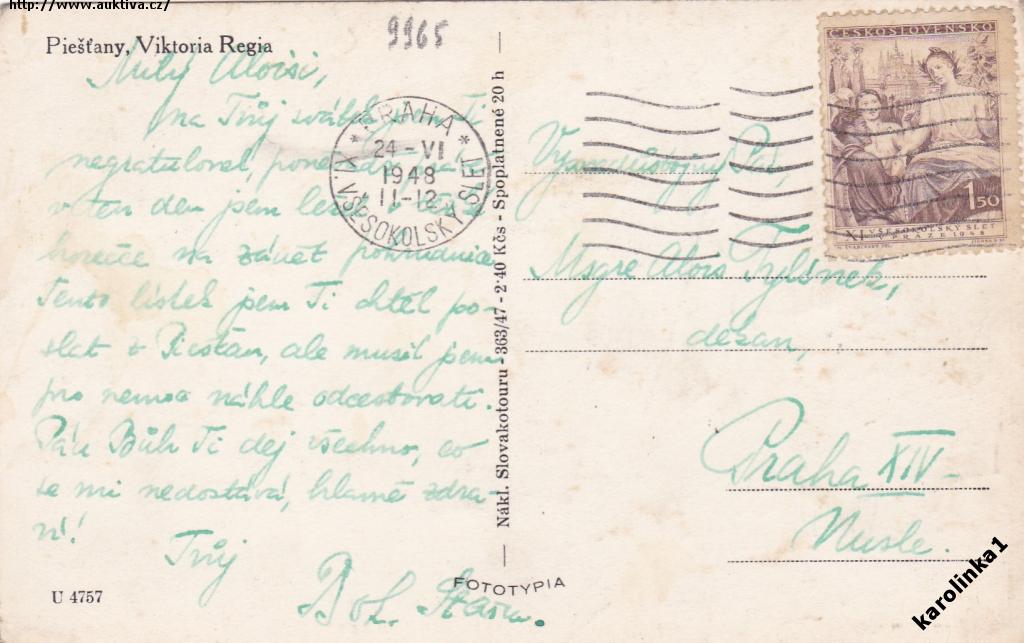 http://www.auktiva.cz/
9965
Piešťany, Viktoria Regia
Milý Aloisi,
na Tvůj svátek jsem Ti
negratuloval, poněvadž právě
v ten den jsem ležel v
horečce na zánět pohrudnice.
Tento lístek jsem Ti chtěl po-
slat z Piešťan, ale musil jsem
pro nemoc náhle odcestovati.
Pán Bůh Ti dej všechno, co
se mi nedostává, hlavně zdra-
ví!
Tvůj
Boh.
U 4757
Nákl. Slovakotouru - 363/47 - 2·40 Kčs - Spoplatnené 20 h
FOTOTYPIA
PRAHA
24-VI
1948
11-12
XI. VŠESOKOLSKÝ SLET
ČESKOSLOVENSKO
1.50
XI. VŠESOKOLSKÝ SLET
V PRAZE 1948
Vysocedůstojný Pán,
Msgre Alois Tylínek,
děkan,
Praha XIV-
Nusle.
karolinka1